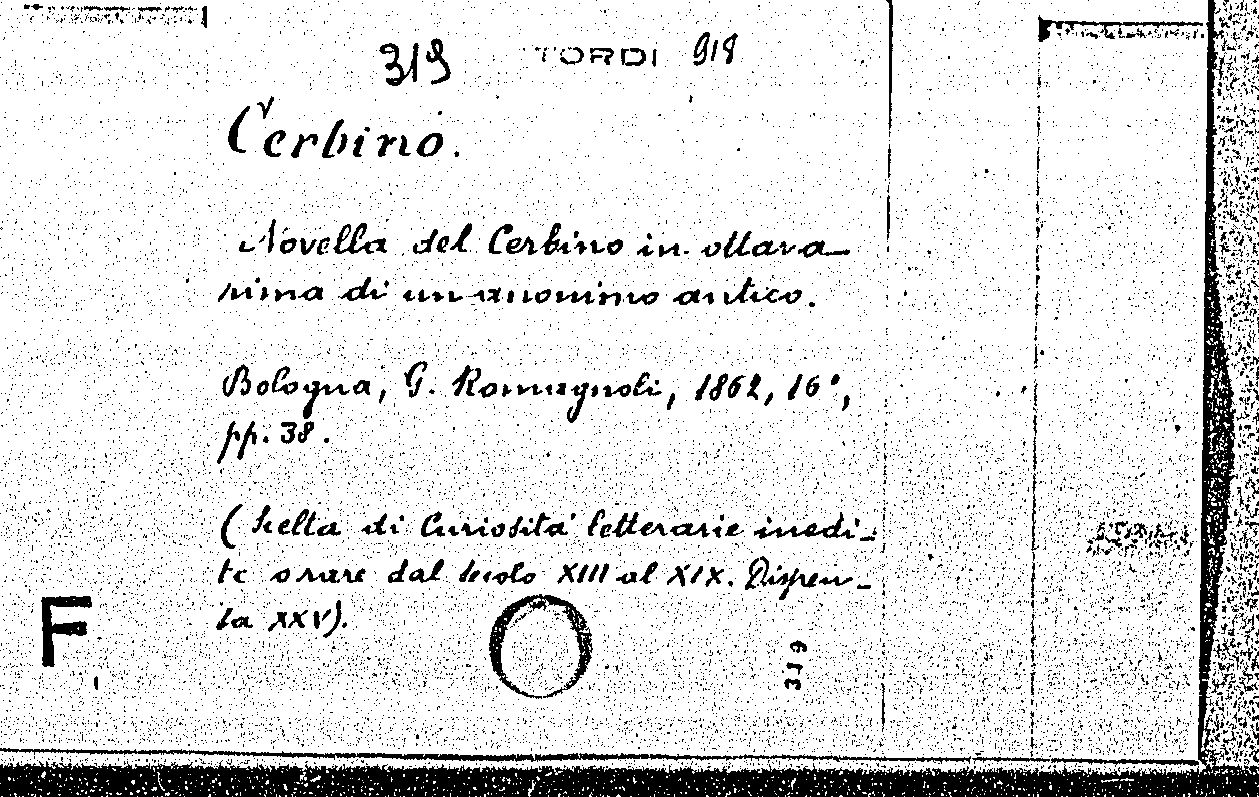 319 TORDI 918
Cerbino.
Novella del Cerbino in ottava
rima di un anonimo antico.
Bologna, G. Romagnoli, 1862, 16°,
pp. 38.
(Scelta di Curiosità letterarie inedi-
te o rare dal secolo XIII al XIX. Dispen-
sa XXV).
F
319